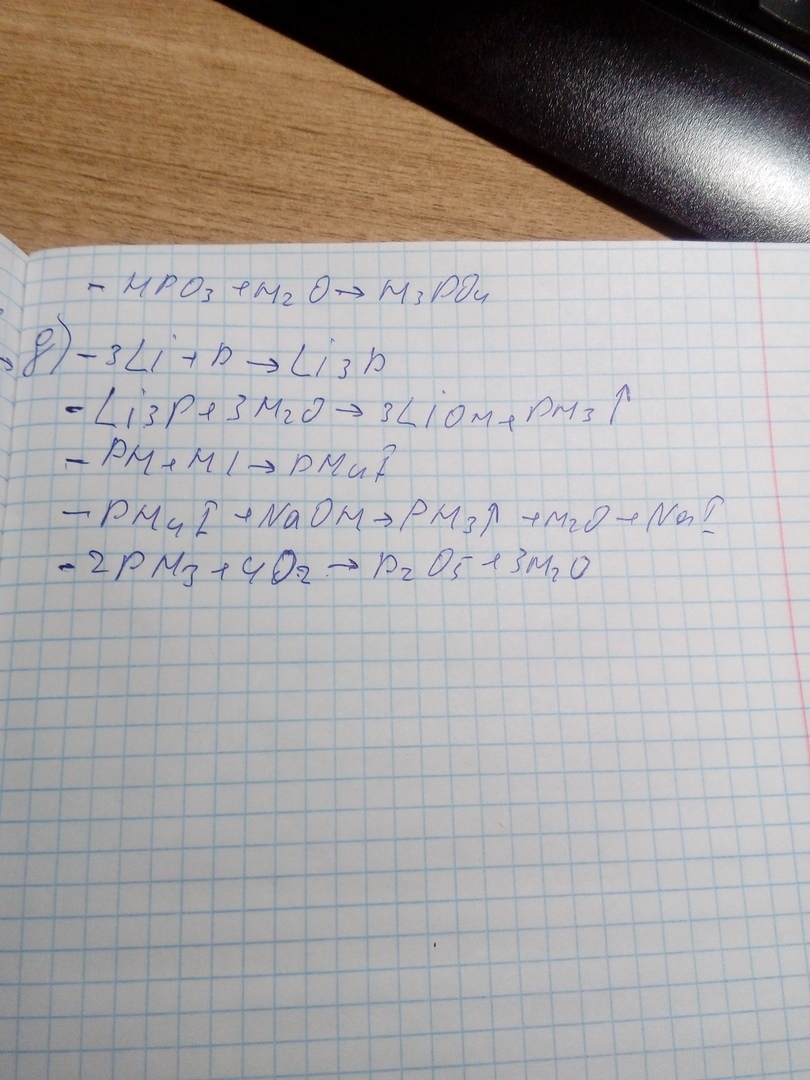 - HPO3 + H2O → H3PO4
д) - 3Li + P → Li3P
- Li3P + 3H2O → 3LiOH + PH3↑
- PH + HI → PH4I
- PH4I + NaOH → PH3↑ + H2O + NaI
- 2PH3 + 4O2 → P2O5 + 3H2O